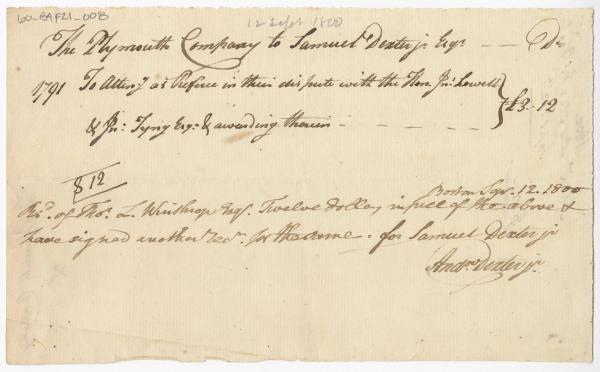 60-BAF21-008
12 Sept 1800
The Plymouth Company to Samuel Dexter jr. Esqr. - - Dr
1791 To Attendg as Referee in their dispute with the Hon. Jno. Lowell
& Jno. Tyng Esqr. & awarding therein - - - - £3-12
$ 12
Boston Sepr. 12. 1800
Recd. of Thos. L. Winthrop Esqr. Twelve dollars in full of the above &
have signed another rect. for the same. for Samuel Dexter jr
Andw. Dexter jr.